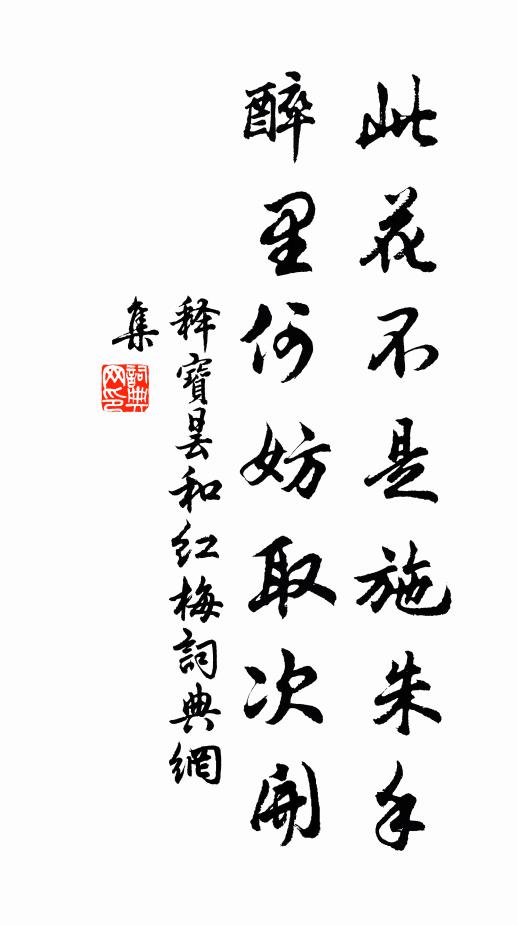 此花不是施朱手
醉里何妨取次開
释寶曇和红梅詞典網
集
詞典网印